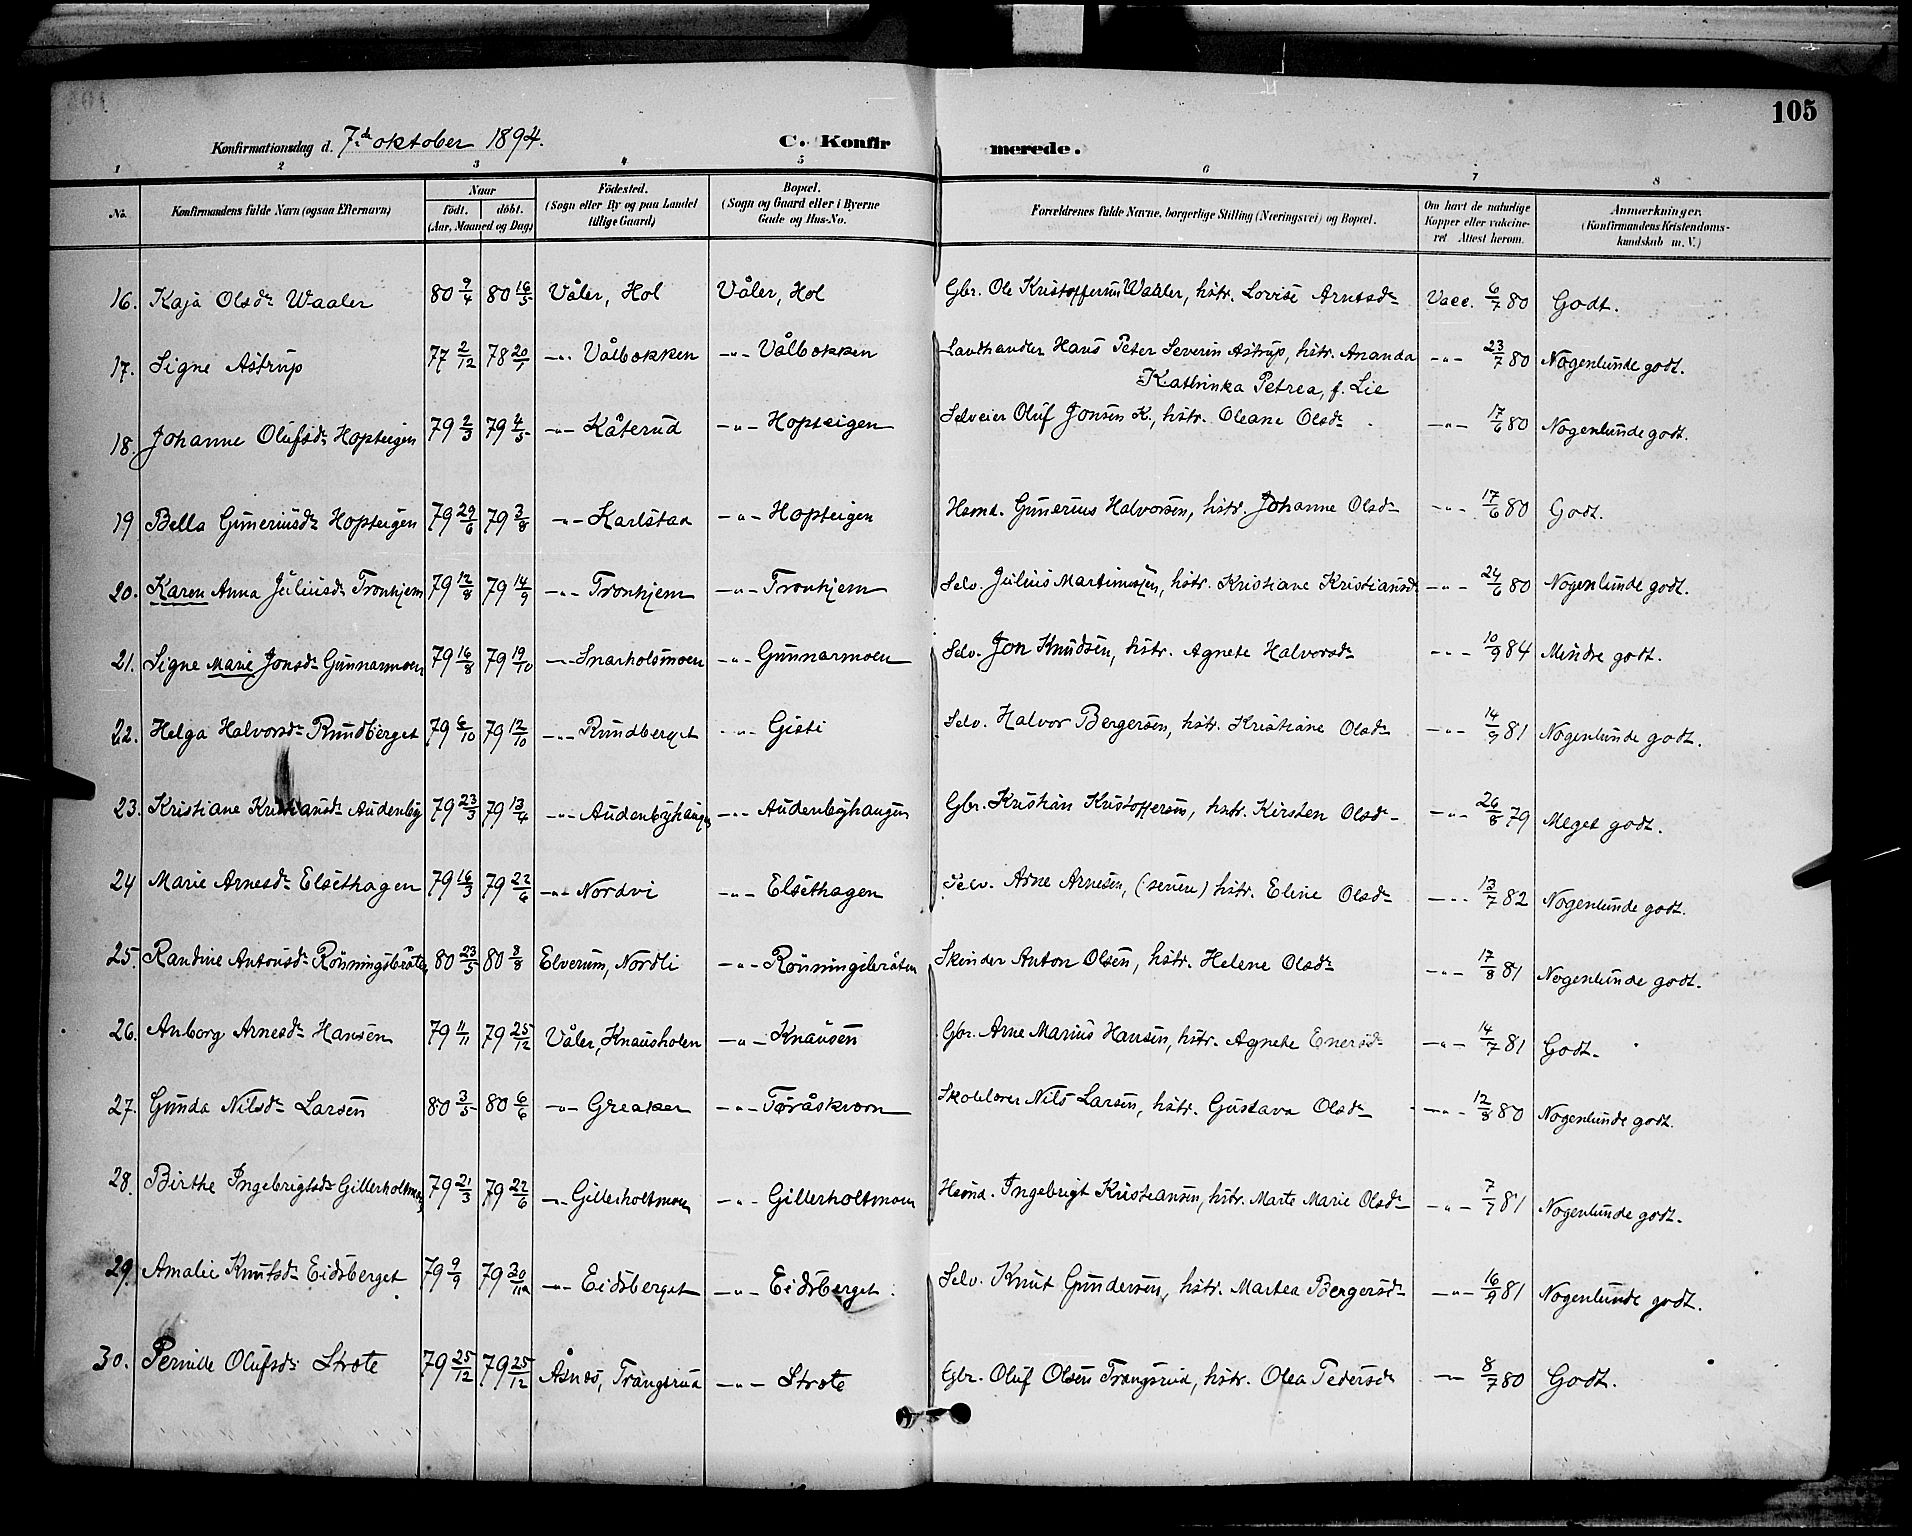 105
Konfirmationsdag d. 7de oktober 1894. C. Konfirmerede.
1 2 3 4 5 6 7 8
No. Konfirmandens fulde Navn (ogsaa Efternavn) Naar födt. döbt. (Aar, Maaned og Dag) Födested. (Sogn eller By og paa Landet tillige Gaard) Bopæl. (Sogn og Gaard eller i Byerne Gade og Hus-No. Forældrenes fulde Navne, borgerlige Stilling (Næringsvei) og Bopæl. Om havt de naturlige Kopper eller vakcineret Attest herom. Anmærkninger. (Konfirmandens Kristendomskundskab m. V.)
16. Kaja Olsdr Waaler 80 9/4 80 16/5 Våler, Hol Våler, Hol Gbr. Ole Kristoffersen Waaler, hstr. Lovise Arntsdr Vacc. 6/7 80 Godt.
17. Signe Astrup 77 2/12 78 20/1 -"- Vålbakken -"- Vålbakken Landhandler Hans Peter Severin Astrup, hstr. Ananda -"- 23/7 80 Nogenlunde godt.
Kathinka Petrea, f. Lie
18. Johanne Olufsdr Hopteigen 79 2/3 79 4/5 -"- Kåterud -"- Hopteigen Selveier Oluf Jonsen K., hstr. Oleane Olsdr -"- 17/6 80 Nogenlunde godt.
19 Bella Guneriusdr Hopteigen 79 29/6 79 3/8 -"- Karlstad -"- Hopteigen Hsmd. Gunerius Halvorsen, hstr. Johanne Olsdr -"- 17/6 80 Godt.
20. Karen Anna Juliusdr Tronhjem 79 12/8 79 14/9 -"- Tronhjem -"- Tronhjem Selv. Julius Martinussen, hstr. Kristiane Kristiansdr -"- 24/6 80 Nogenlunde godt.
21. Signe Marie Jonsdr Gunnarmoen 79 16/8 79 19/10 -"- Snarholsmoen -"- Gunnarmoen Selv. Jon Knudsen, hstr. Agnete Halvorsdr -"- 10/9 84 Mindre godt.
22. Helga Halvorsdr Rundberget 79 6/10 79 12/10 -"- Rundberget -"- Gisti Selv. Halvor Bergersen, hstr. Kristiane Olsdr -"- 14/9 81 Nogenlunde godt.
23. Kristiane Kristiansdr Audenby 79 23/3 79 13/4 -"- Audenbyhaugen -"- Audenbyhaugen Gbr. Kristian Kristoffersen, hstr. Kirsten Olsdr -"- 26/8 79 Meget godt.
24 Marie Arnesdr Elsethagen 79 16/3 79 22/6 -"- Nordvi -"- Elsethagen Selv. Arne Arnesen, hstr. Eline Olsdr -"- 13/7 82 Nogenlunde godt.
25. Randine Antonsdr Rönningsbråten 80 23/5 80 8/8 Elverum, Nordli -"- Rönningsbråten Skinder Anton Olsen, hstr. Helene Olsdr -"- 17/8 81 Nogenlunde godt.
26. Anborg Arnesdr Hansen 79 11/11 79 25/12 Våler, Knausholen -"- Knausen Gbr. Arne Marius Hansen, hstr. Agnete Enersdr -"- 14/7 81 Godt.
27. Gunda Nilsdr Larsen 80 3/5 80 6/6 -"- Greaker -"- Toråskvern Skolelærer Nils Larsen, hstr. Gustava Olsdr -"- 12/8 80 Nogenlunde godt.
28. Birthe Ingebrigtsdr Gillerholtmoen 79 21/3 79 22/6 -"- Gillerholtmoen -"- Gillerholtmoen Hsmd. Ingebrigt Kristiansen, hstr. Marte Marie Olsdr -"- 7/7 81 Nogenlunde godt.
29. Amalie Knutsdr Eidsberget 79 9/9 79 30/11 -"- Eidsberget -"- Eidsberget. Selv. Knut Gundersen, hstr. Martea Bergersdr -"- 16/9 81 Nogenlunde godt.
30. Pernille Olufsdr Strote 79 25/12 79 25/12 Åsnes, Trangsrud -"- Strote Gbr. Oluf Olsen Trangsrud, hstr. Olea Pedersdr -"- 8/7 80 Godt.